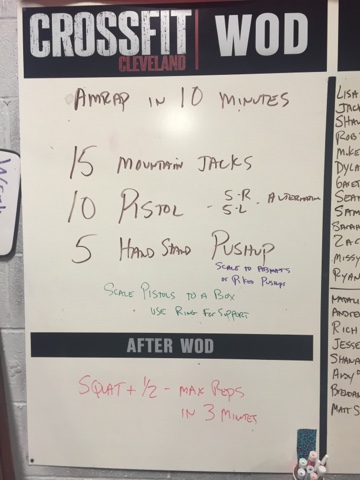 CROSSFIT WOD
CLEVELAND
AMRAP IN 10 MINUTES
15 MOUNTAIN JACKS
10 PISTOL - 5-R
5-L
5 HAND STAND PUSHUP
SCALE TO ABMATS
OR PIKED PUSHUPS
SCALE PISTOLS TO A BOX
• USE RING FOR SUPPORT
AFTER WOD
SQUAT + 1/2 - MAX REPS
IN 3 MINUTES
LISA
JACK
SHAW
ROB
MIKE
DYLA
SEAN
SARAH
ZAC
MISSY
RYAN
NATALI
ANDRE
RICH
JESSE
SHANA
ANDY
BRENDAN
MATT S